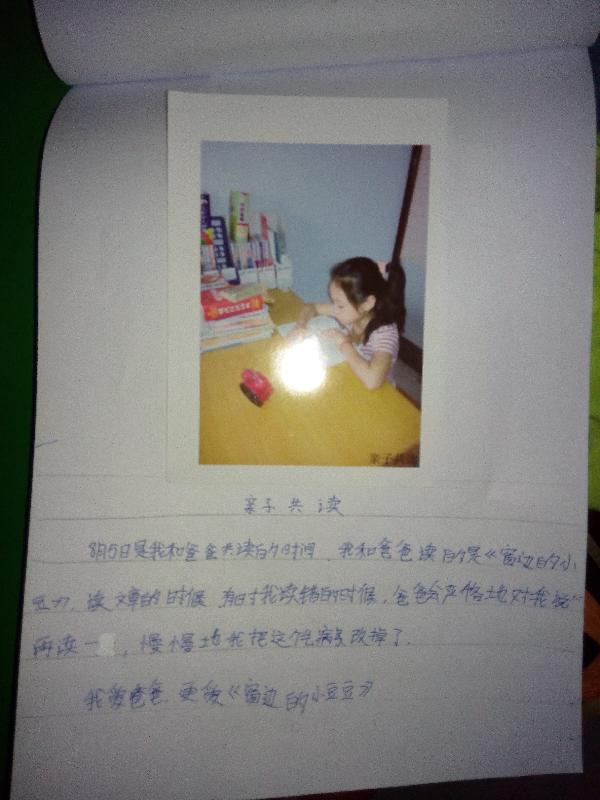 亲子共读
亲子共读
8月5日是我和爸爸共读的时间，我和爸爸读的是《窗边的小
豆》，读文章的时候，有时我读错的时候，爸爸会严格地对我说“
再读一，慢慢地我把这个毛病改掉了.
我爱爸爸，更爱《窗边的小豆豆》